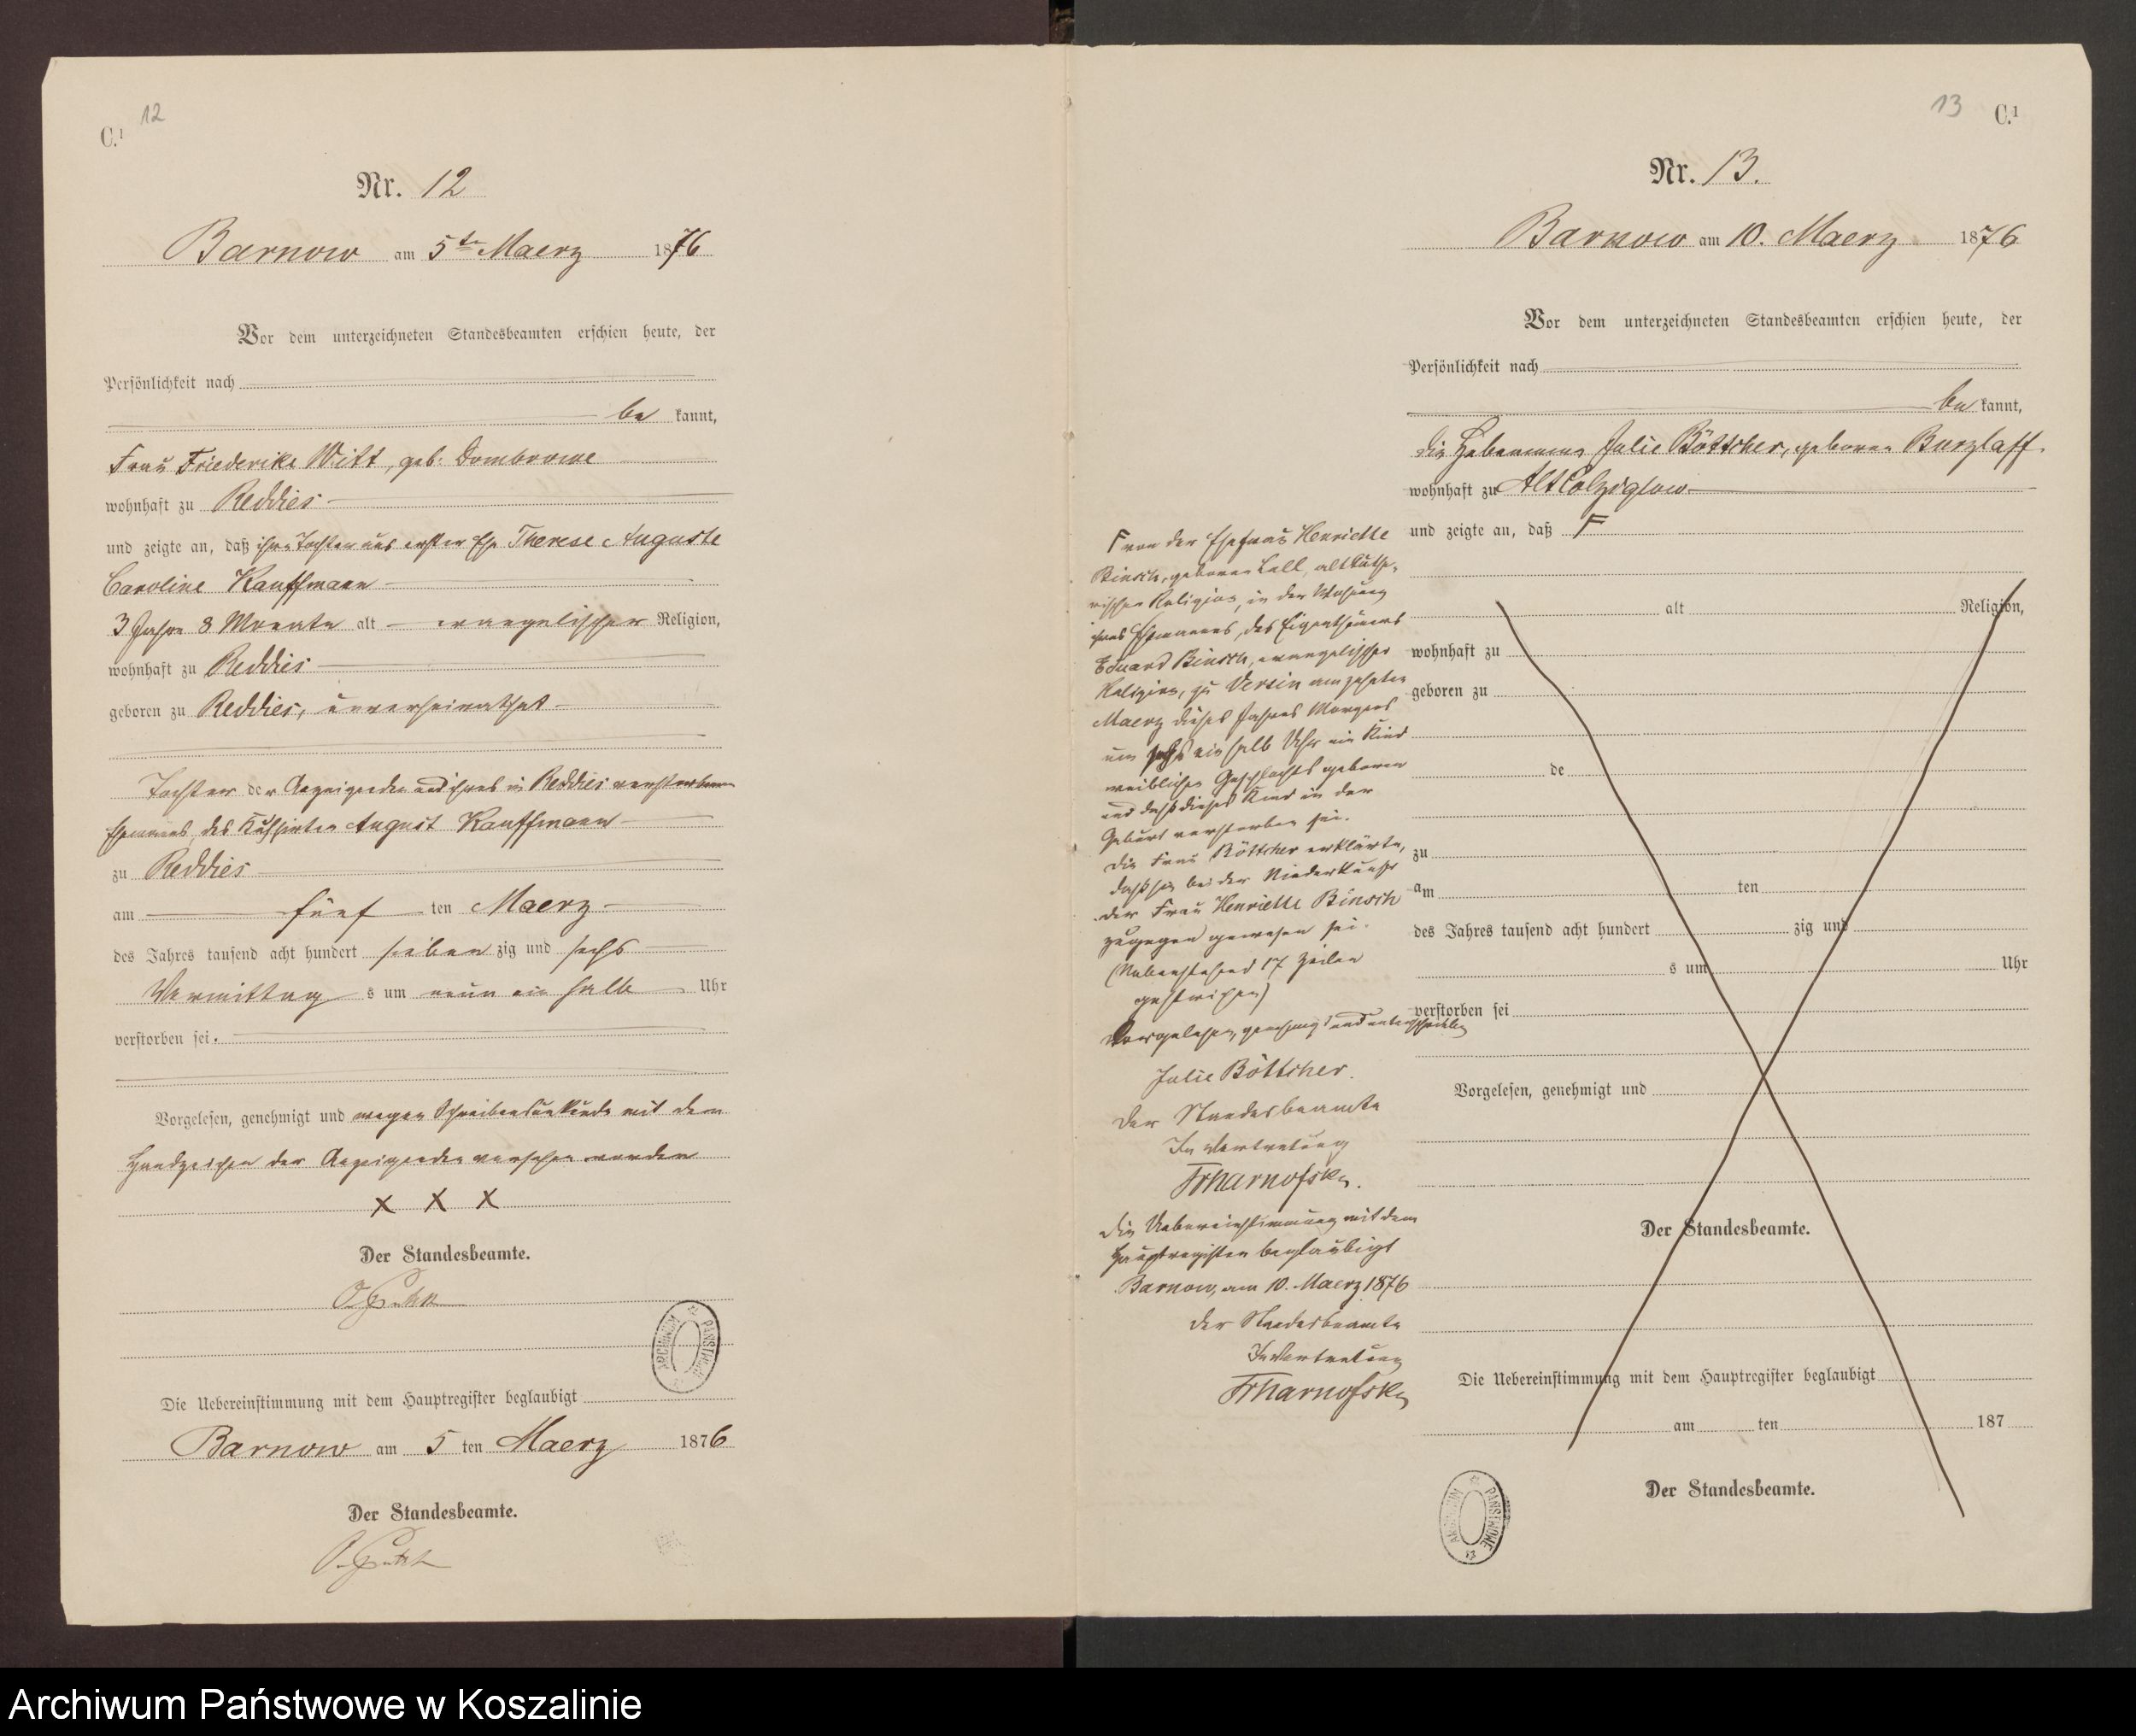 C.¹ 12
Nr. 12
Barnow am 5ten Maerz 1876
Vor dem unterzeichneten Standesbeamten erschien heute, der
Persönlichkeit nach
be kannt,
Frau Friederike Witt, geb. Dombrowe
wohnhaft zu Reddies
und zeigte an, daß ihre Tochter aus erster Ehe Therese Auguste
Caroline Kauffmann
3 Jahre 8 Monate alt evangelischer Religion,
wohnhaft zu Reddies
geboren zu Reddies, unverheirathet
Tochter der Anzeigenden und ihres in Reddies verstorbenen
Ehemannes, des August Kauffmann
zu Reddies
am fünf ten Maerz
des Jahres tausend acht hundert sieben zig und sechs
Vormittag s um neun ein halb Uhr
verstorben sei.
Vorgelesen, genehmigt und wegen Schreibensunkunde mit dem
Handzeichen der Anzeigenden versehen worden
X X X
Der Standesbeamte.
Die Uebereinstimmung mit dem Hauptregister beglaubigt
Barnow am 5 ten Maerz 1876
Der Standesbeamte.
ARCHIWUM PAŃSTWOWE
13 C.¹
Nr. 13.
Barnow am 10. Maerz 1876
Vor dem unterzeichneten Standesbeamten erschien heute, der
Persönlichkeit nach
be kannt,
die Hebamme Julie Böttcher, geborne Burzlaff
wohnhaft zu Alt Colziglow
und zeigte an, daß F
alt Religion,
wohnhaft zu
geboren zu
de
zu
am ten
des Jahres tausend acht hundert zig und
s um Uhr
verstorben sei
Vorgelesen, genehmigt und
Der Standesbeamte.
Die Uebereinstimmung mit dem Hauptregister beglaubigt
am ten 187
Der Standesbeamte.
F von der Ehefrau Henriette
Binsch, geborne Lall, altluthe-
rischer Religion, in der Wohnung
ihres Ehemannes, des Eigenthümers
Eduard Binsch, evangelischer
Religion, zu Versin am zehnten
Maerz dieses Jahres Morgens
um sechs ein halb Uhr ein Kind
weiblichen Geschlechts geboren
und daß dieses Kind in der
Geburt verstorben sei.
Die Frau Böttcher erklärte,
daß sie bei der Niederkunft
der Frau Henriette Binsch
zugegen gewesen sei.
(Nebenstehend 17 Zeilen
gestrichen)
Vorgelesen, genehmigt und unterschrieben
Julie Böttcher.
Der Standesbeamte
In Vertretung
Die Uebereinstimmung mit dem
Hauptregister beglaubigt
Barnow, am 10. Maerz 1876
Der Standesbeamte
In Vertretung
ARCHIWUM PAŃSTWOWE
Archiwum Państwowe w Koszalinie